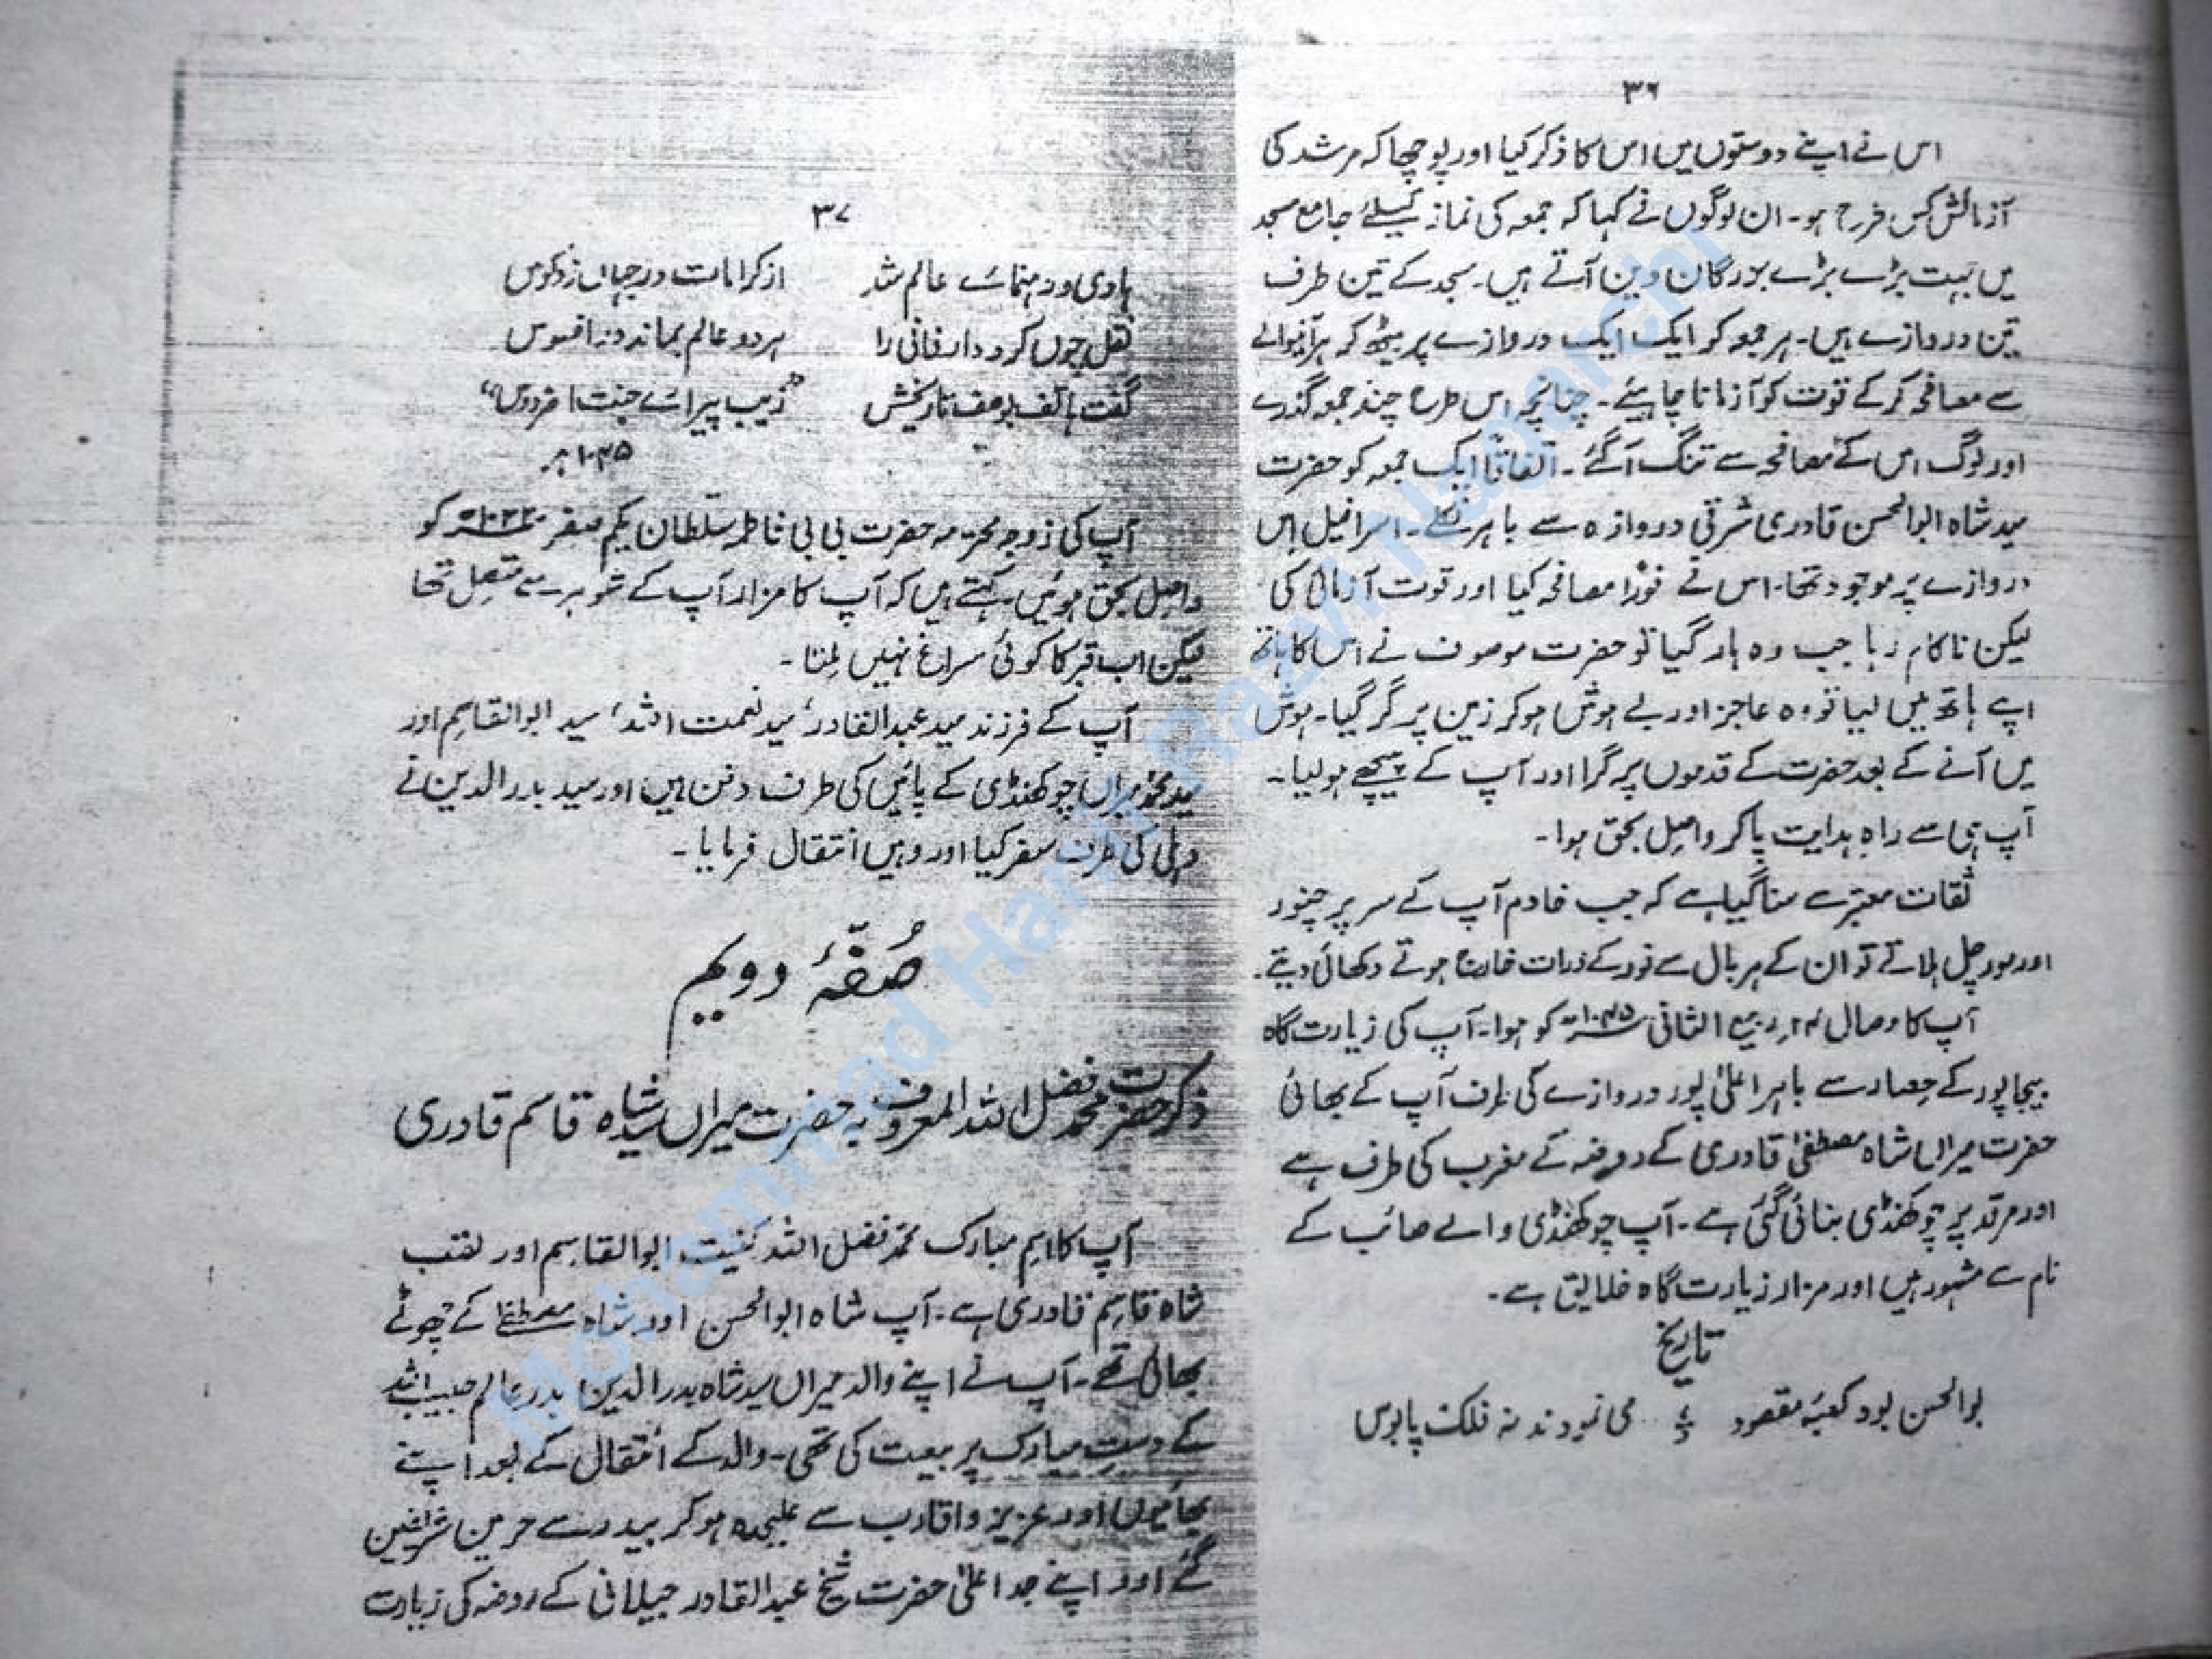 ۳۶
اس نے اپنے دوستوں میں اس کا ذکر کیا اور پوچھا کہ مرشد کی
آزمائش کس طرح ہو۔ ان لوگوں نے کہا کہ جمعہ کی نماز کیلئے جامع مسجد
میں بہت بڑے بڑے بزرگان دین آتے ہیں۔ مسجد کے تین طرف
تین دروازے ہیں۔ ہر جمعہ کو ایک ایک دروازے پر بیٹھ کہ ہر آنیوالے
سے مصافحہ کر کے قوت کو آزمانا چاہیئے۔ چنانچہ اس طرح چند جمعہ گذرے
اور لوگ اس کے مصافحہ سے تنگ آ گئے۔ اتفاقاً ایک جمعہ کو حضرت
سید شاہ ابوالحسن قادری شرقی دروازہ سے باہر نکلے۔ اسرافیل اس
دروازے پر موجود تھا۔ اس نے فوراً مصافحہ کیا اور قوت آزمائی کی
لیکن ناکام رہا جب وہ ہار گیا تو حضرت موصوف نے اس کا ہاتھ
اپنے ہاتھ میں لیا تو وہ عاجز اور بے ہوش ہو کر زمین پر گر گیا۔ ہوش
میں آنے کے بعد حضرت کے قدموں پر گرا اور آپ کے پیچھے ہو لیا۔
آپ ہی سے راہِ ہدایت پا کر واصل بحق ہوا۔
ثقات معتبر سے سنا گیا ہے کہ جب خادم آپ کے سر پر چنور
اور مورچھل ہلاتے تو ان کے ہر بال سے نور کے ذرات خارج ہوتے دکھائی دیتے۔
آپ کا وصال ۲۴؍ ربیع الثانی ۱۰۴۵ھ کو ہوا۔ آپ کی زیارت گاہ
بیجاپور کے حصار سے باہر اعلیٰ پور دروازے کی طرف آپ کے بھائی
حضرت میراں شاہ مصطفیٰ قادری کے روضہ کے مغرب کی طرف ہے
اور مرقد پر چوکھنڈی بنائی گئی ہے۔ آپ چوکھنڈی والے صاحب کے
نام سے مشہور ہیں اور مزار زیارت گاہ خلایق ہے۔
تاریخ
بوالحسن بود کعبۂ مقصود می نمودند نہ فلک پابوس
۳۷
ہادی و رہنمائے عالم شد از کرامات در جہاں زد کوس
نقل چوں کرد دار فانی را ہر دو عالم بماند در افسوس
گفت ہاتف بوصف تاریخش "زیب پیرائے جنت الفردوس"
۱۰۴۵ھ
آپ کی زوجہ محترمہ حضرت بی بی فاطمہ سلطان یکم صفر ۱۰۲۲ھ کو
واصل بحق ہوئیں۔ کہتے ہیں کہ آپ کا مزار آپ کے شوہر سے متصل تھا
لیکن اب قبر کا کوئی سراغ نہیں ملتا۔
آپ کے فرزند سید عبدالقادر، سید نعمت اللہ، سید ابوالقاسم اور
سید محمد میراں چوکھنڈی کے پائیں کی طرف دفن ہیں اور سید بدرالدین نے
دہلی کی طرف سفر کیا اور وہیں انتقال فرمایا۔
صُفّۂ دویم
ذکر حضرت محمد فضل اللہ المعروف بہ حضرت میراں سید شاہ قاسم قادری
آپ کا اسم مبارک محمد فضل اللہ کنیت ابوالقاسم اور لقب
شاہ قاسم قادری ہے۔ آپ شاہ ابوالحسن اور شاہ مصطفےٰ کے چھوٹے
بھائی تھے۔ آپ نے اپنے والد میراں سید شاہ بدرالدین بدر عالم حبیب اللہ
کے دستِ مبارک پر بیعت کی تھی۔ والد کے انتقال کے بعد اپنے
بھائیوں اور عزیز و اقارب سے علیحدہ ہو کر بیدر سے حرمین شریفین
گئے اور اپنے جد اعلیٰ حضرت شیخ عبدالقادر جیلانی کے روضہ کی زیارت
Mohammad Hanif Razvi Nagarchi